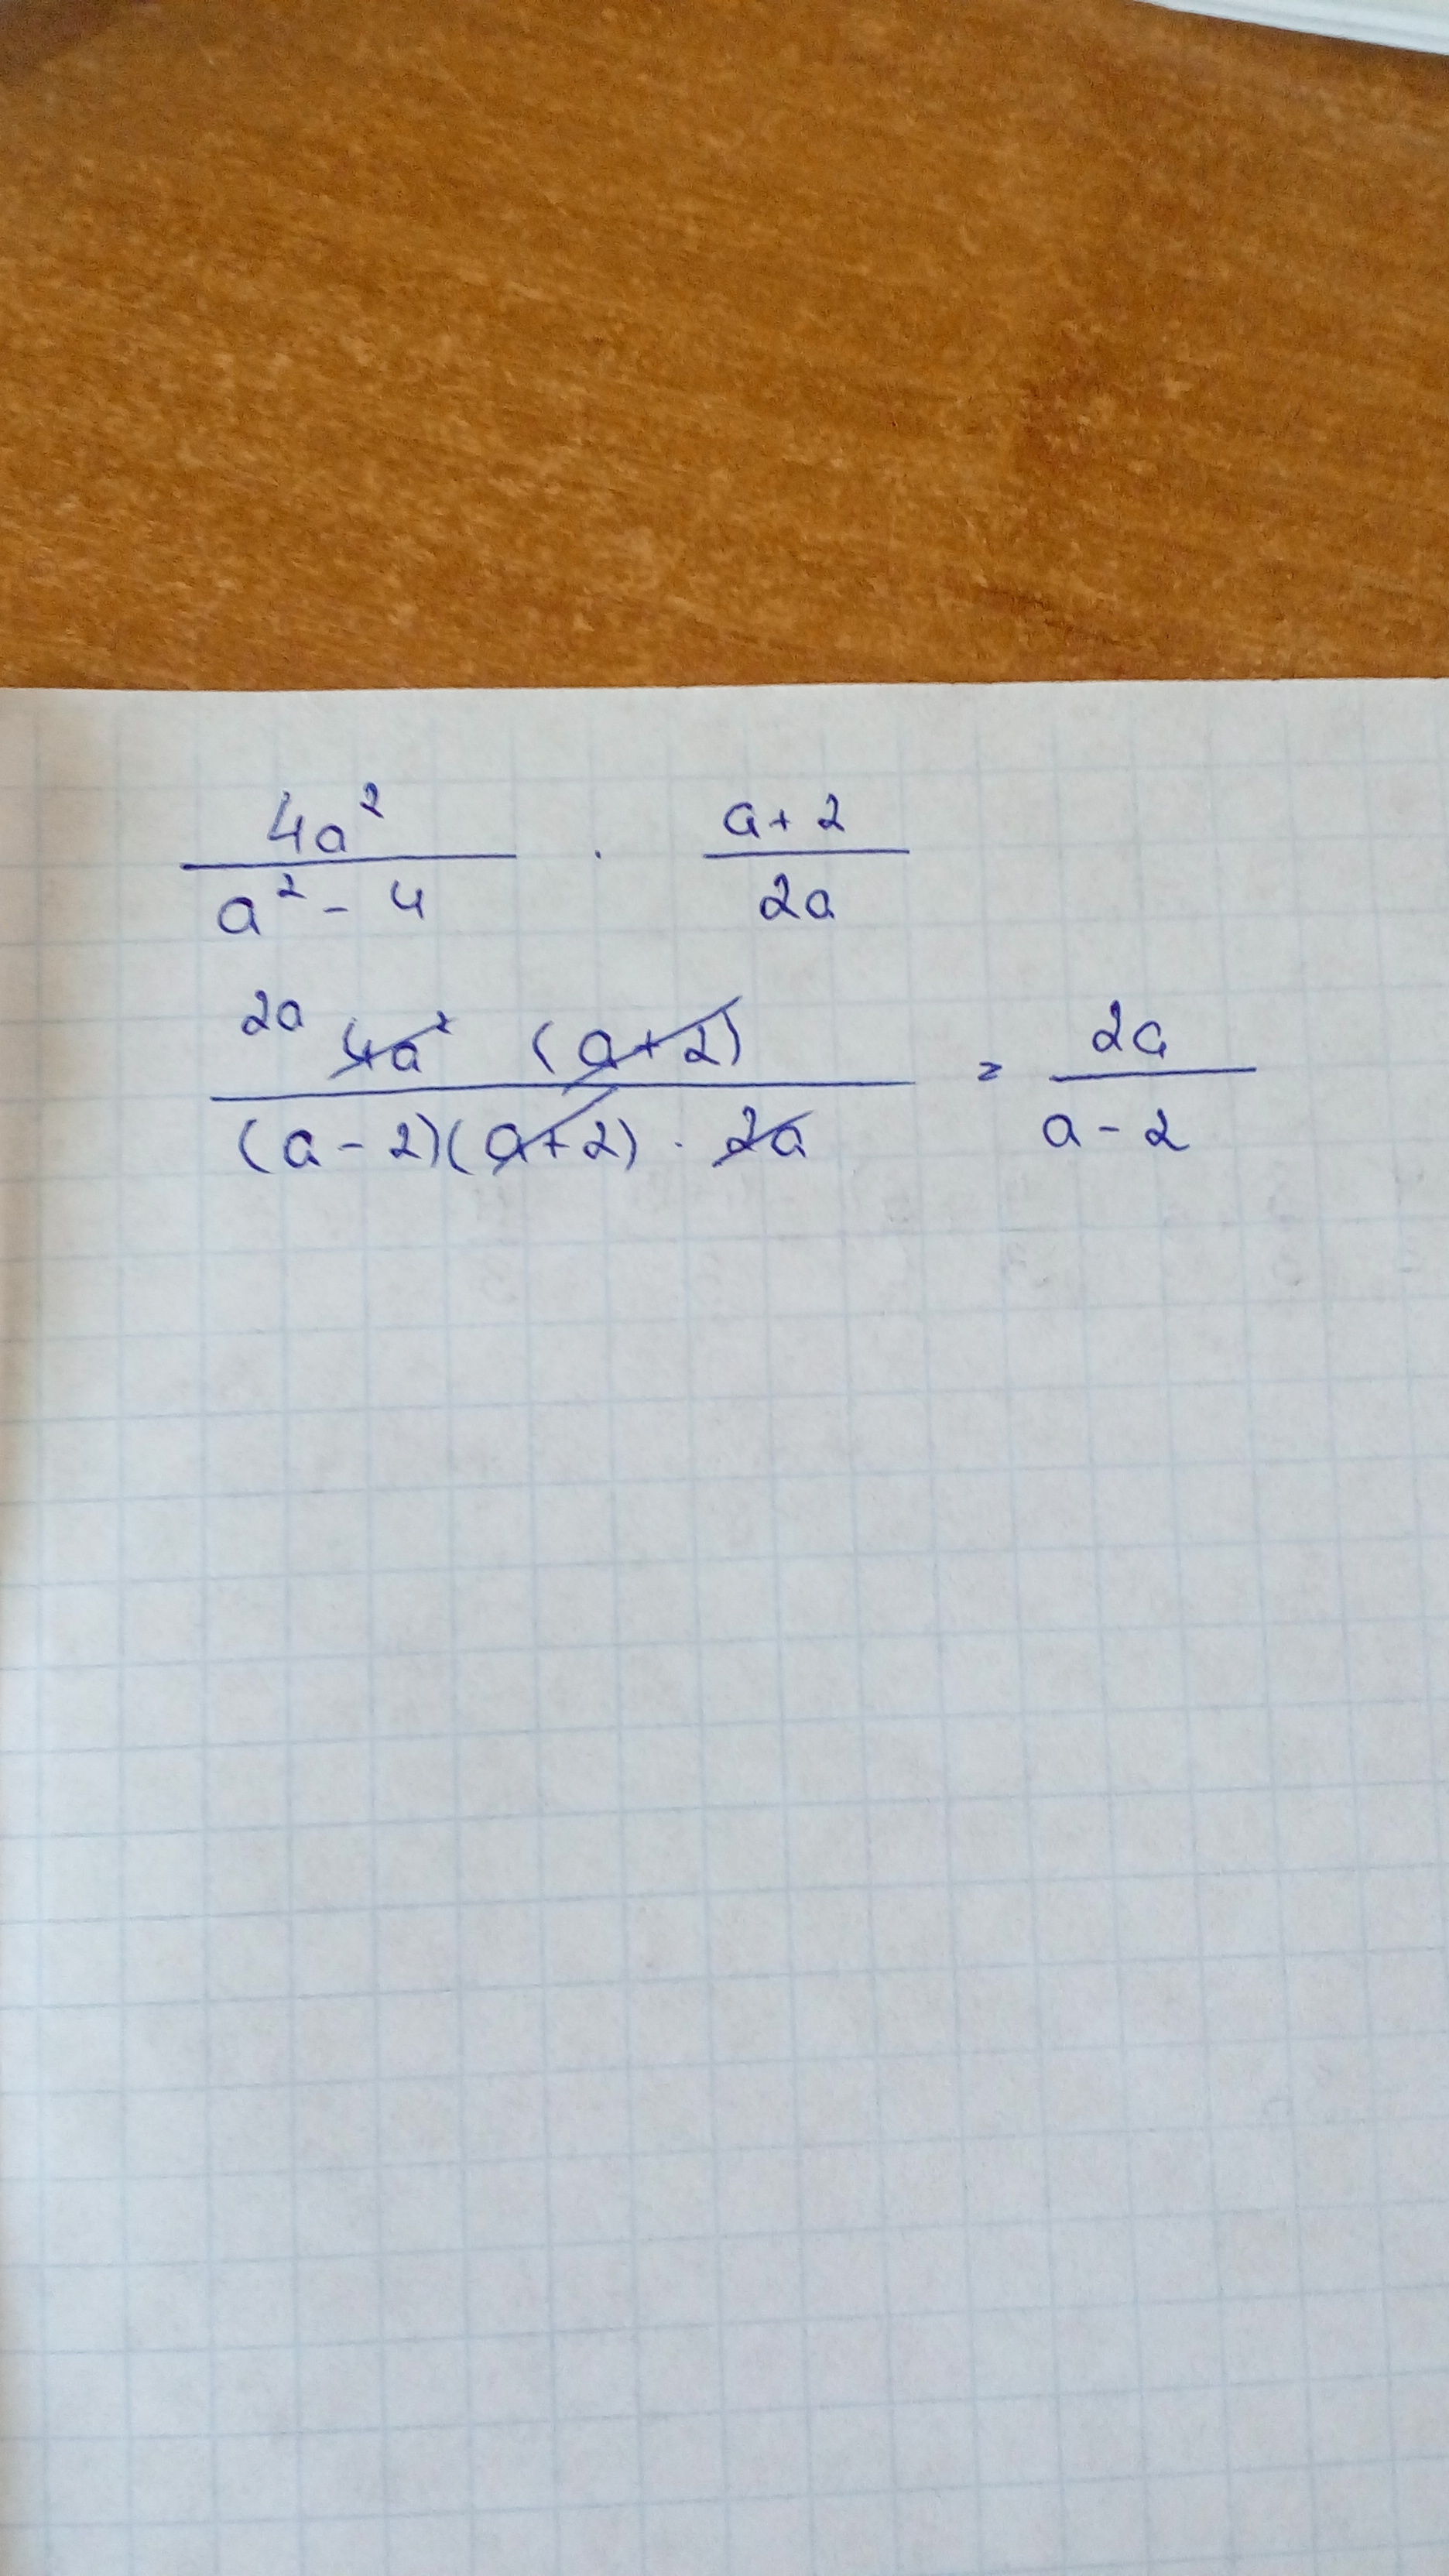 4a² / a² - 4 · a + 2 / 2a
2a 4a² (a + 2) / (a - 2)(a + 2) · 2a = 2a / a - 2